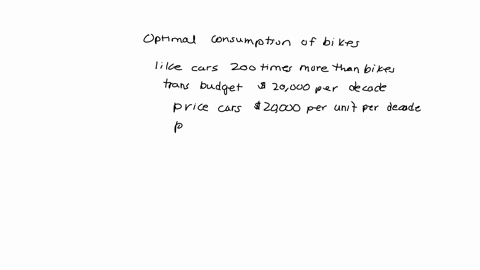 Optimal consumption of bikes
like cars 200 times more than bikes
trans budget $20,000 per decade
price cars $20,000 per unit per decade
p